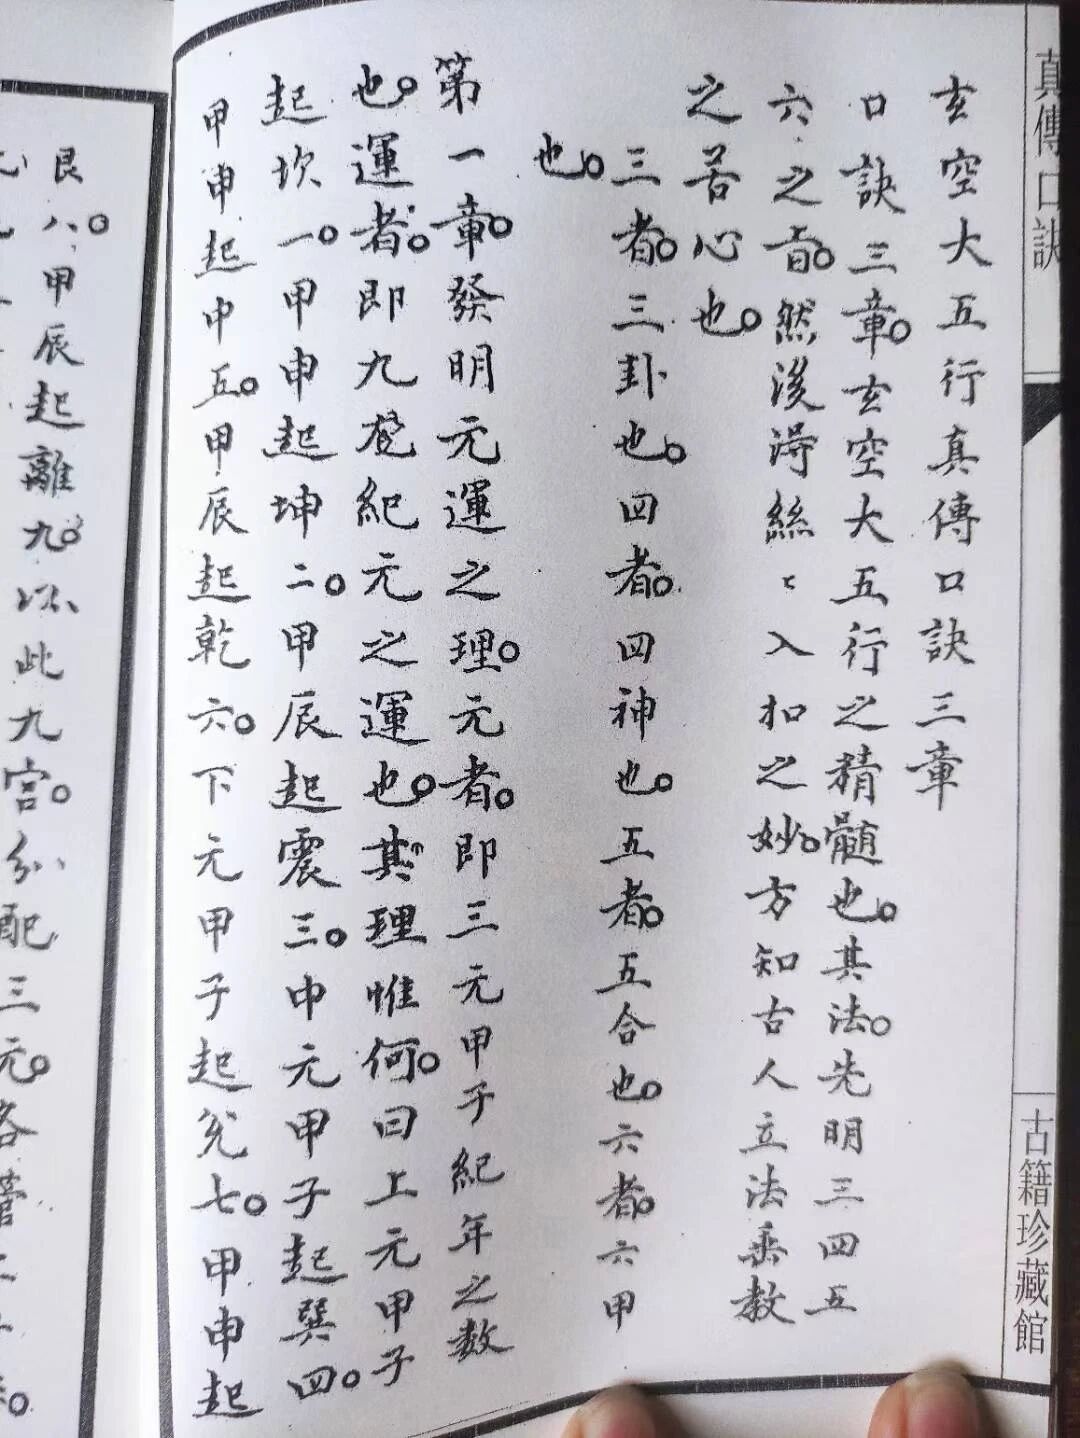 真傳口訣
古籍珍藏館
玄空大五行真傳口訣三章
口訣三章。玄空大五行之精髓也。其法。先明三四五
六之旨。然後得絲〻入扣之妙。方知古人立法垂教
之苦心也。
三者。三卦也。四者。四神也。五者。五合也。六者。六甲
也。
第一章。發明元運之理。元者。即三元甲子紀年之數
也。運者。即九宮紀元之運也。其理惟何。曰上元甲子
起坎一。甲申起坤二。甲辰起震三。中元甲子起巽四。
甲申起中五。甲辰起乾六。下元甲子起兌七。甲申起
艮八。甲辰起離九。以此九宮。分配三元。各管